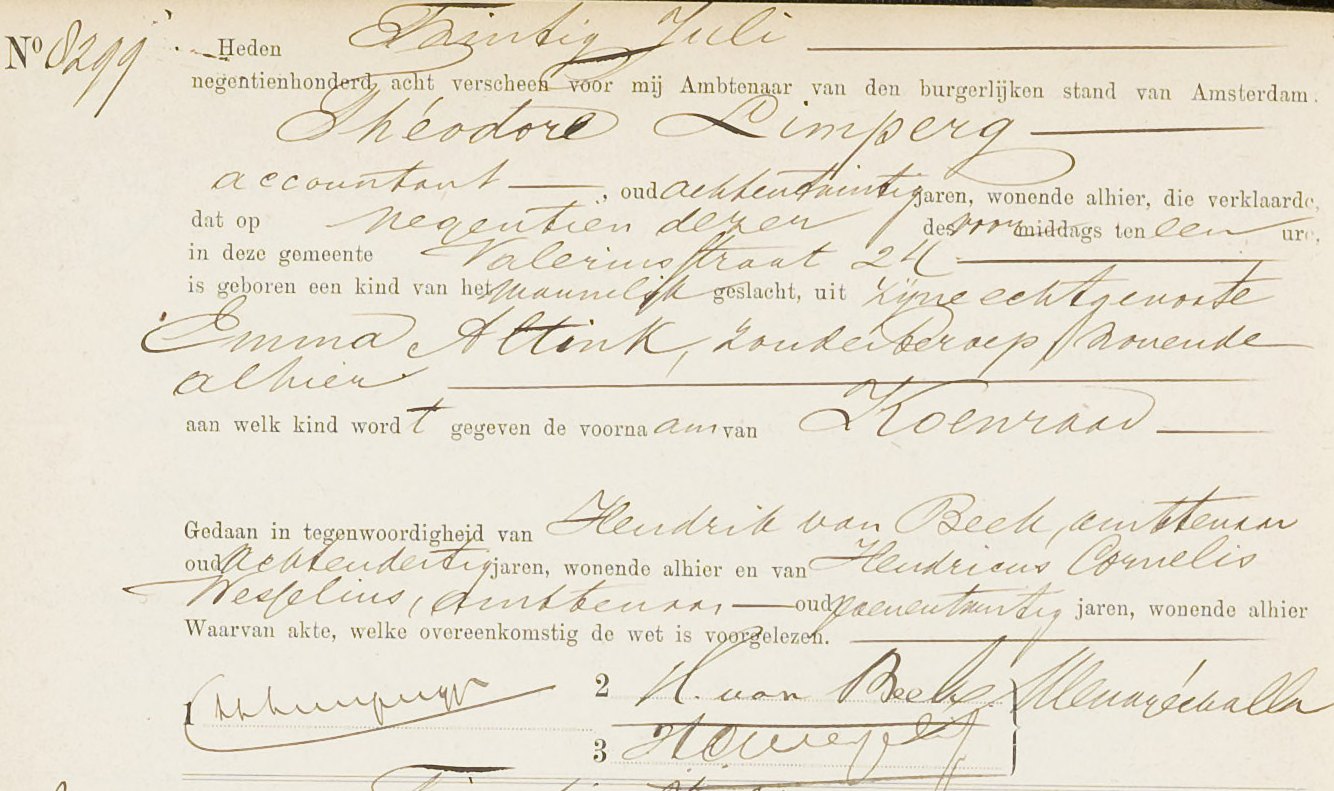 Nº 8299 Heden Twintig Juli
negentienhonderd acht verscheen voor mij Ambtenaar van den burgerlijken stand van Amsterdam.
Théodore Limperg
accountant, oud achtentwintig jaren, wonende alhier, die verklaarde,
dat op negentien dezer des voormiddags ten een ure,
in deze gemeente Valeriusstraat 24
is geboren een kind van het mannelijk geslacht, uit zijne echtgenoote
Emma Altink, zonder beroep, wonende
alhier
aan welk kind wordt gegeven de voornaam van Koenraad
Gedaan in tegenwoordigheid van Hendrik van Beek, ambtenaar
oud achtendertig jaren, wonende alhier en van Hendricus Cornelis
Wesselius, ambtenaar oud jaren, wonende alhier
Waarvan akte, welke overeenkomstig de wet is voorgelezen.
1 2 H. van Beek
3